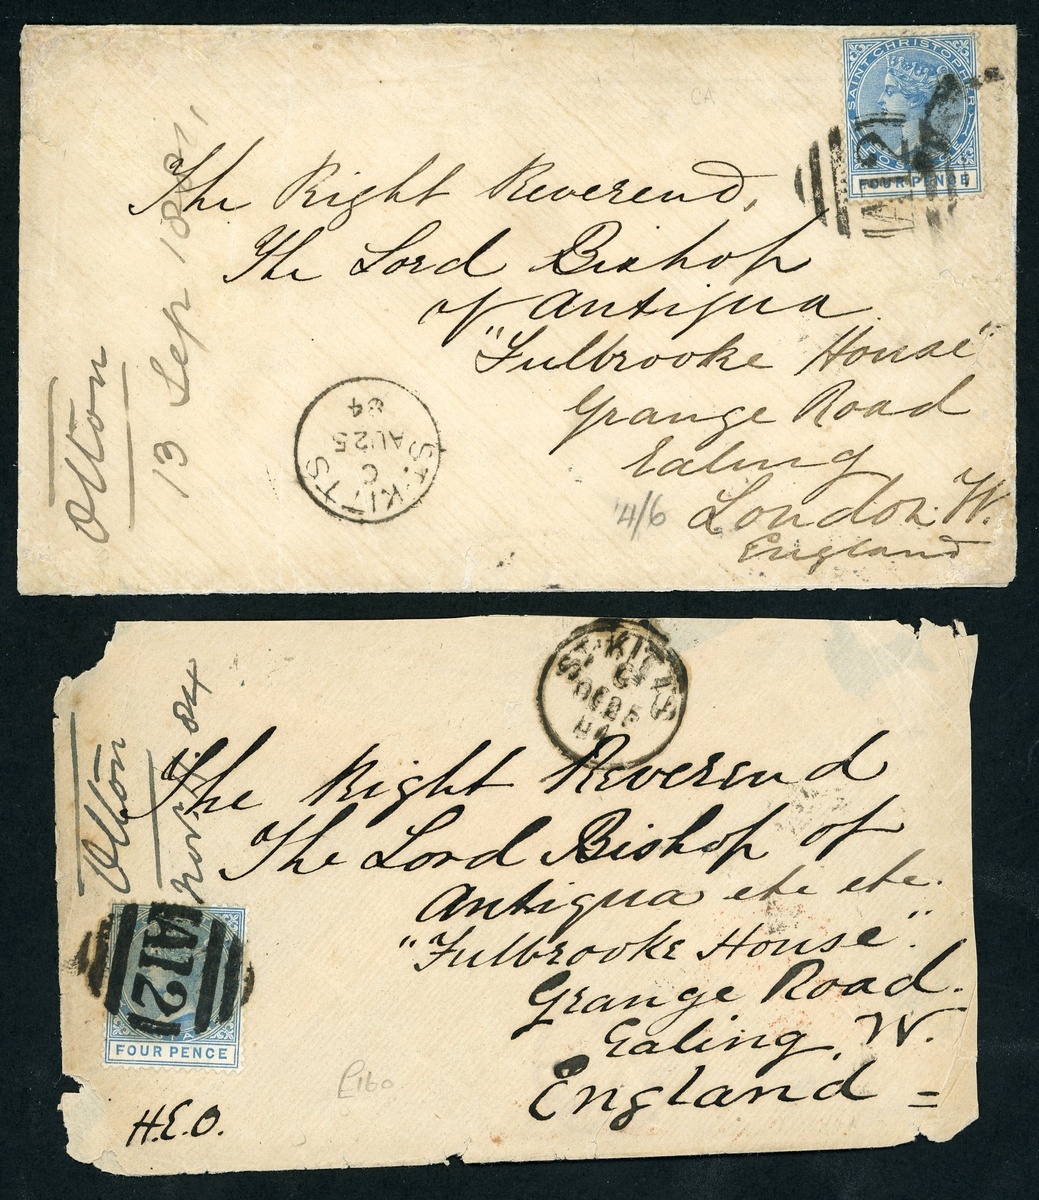 SAINT CHRISTOPHER
POSTAGE
FOUR PENCE
A12
CA
The Right Reverend,
The Lord Bishop
of Antigua
"Fulbrooke House"
Grange Road
Ealing
London. W.
England
Olton
13 Sep
ST. KITTS
C
AU 25
84
4/6
ST. KITTS
84
The Right Reverend
The Lord Bishop of
Antigua etc etc.
"Fulbrooke House".
Grange Road.
Ealing. W.
England =
Olton
84
A12
FOUR PENCE
£160
H.E.O.